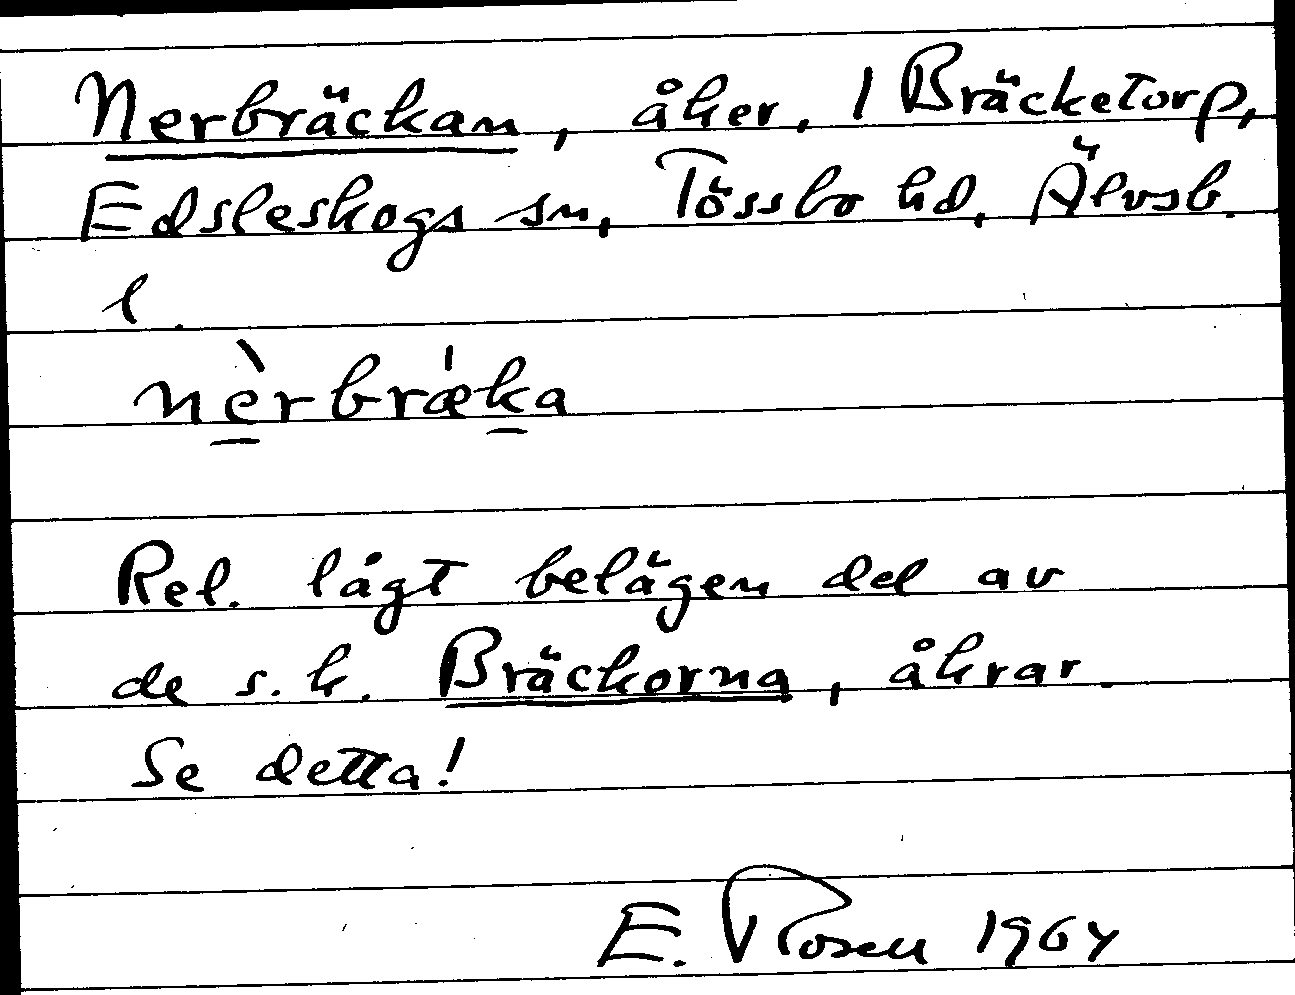 Nerbräckan, åker, 1 Bräcketorp,
Edsleskogs sn, Tössbo hd, Älvsb.
l.
nèrbrǽka
Rel. lågt belägen del av
de s.k. Bräckorna, åkrar.
Se detta!
E. Rosen 1964